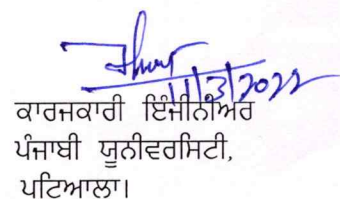 11/3/2022
ਕਾਰਜਕਾਰੀ ਇੰਜੀਨੀਅਰ
ਪੰਜਾਬੀ ਯੂਨੀਵਰਸਿਟੀ,
ਪਟਿਆਲਾ।